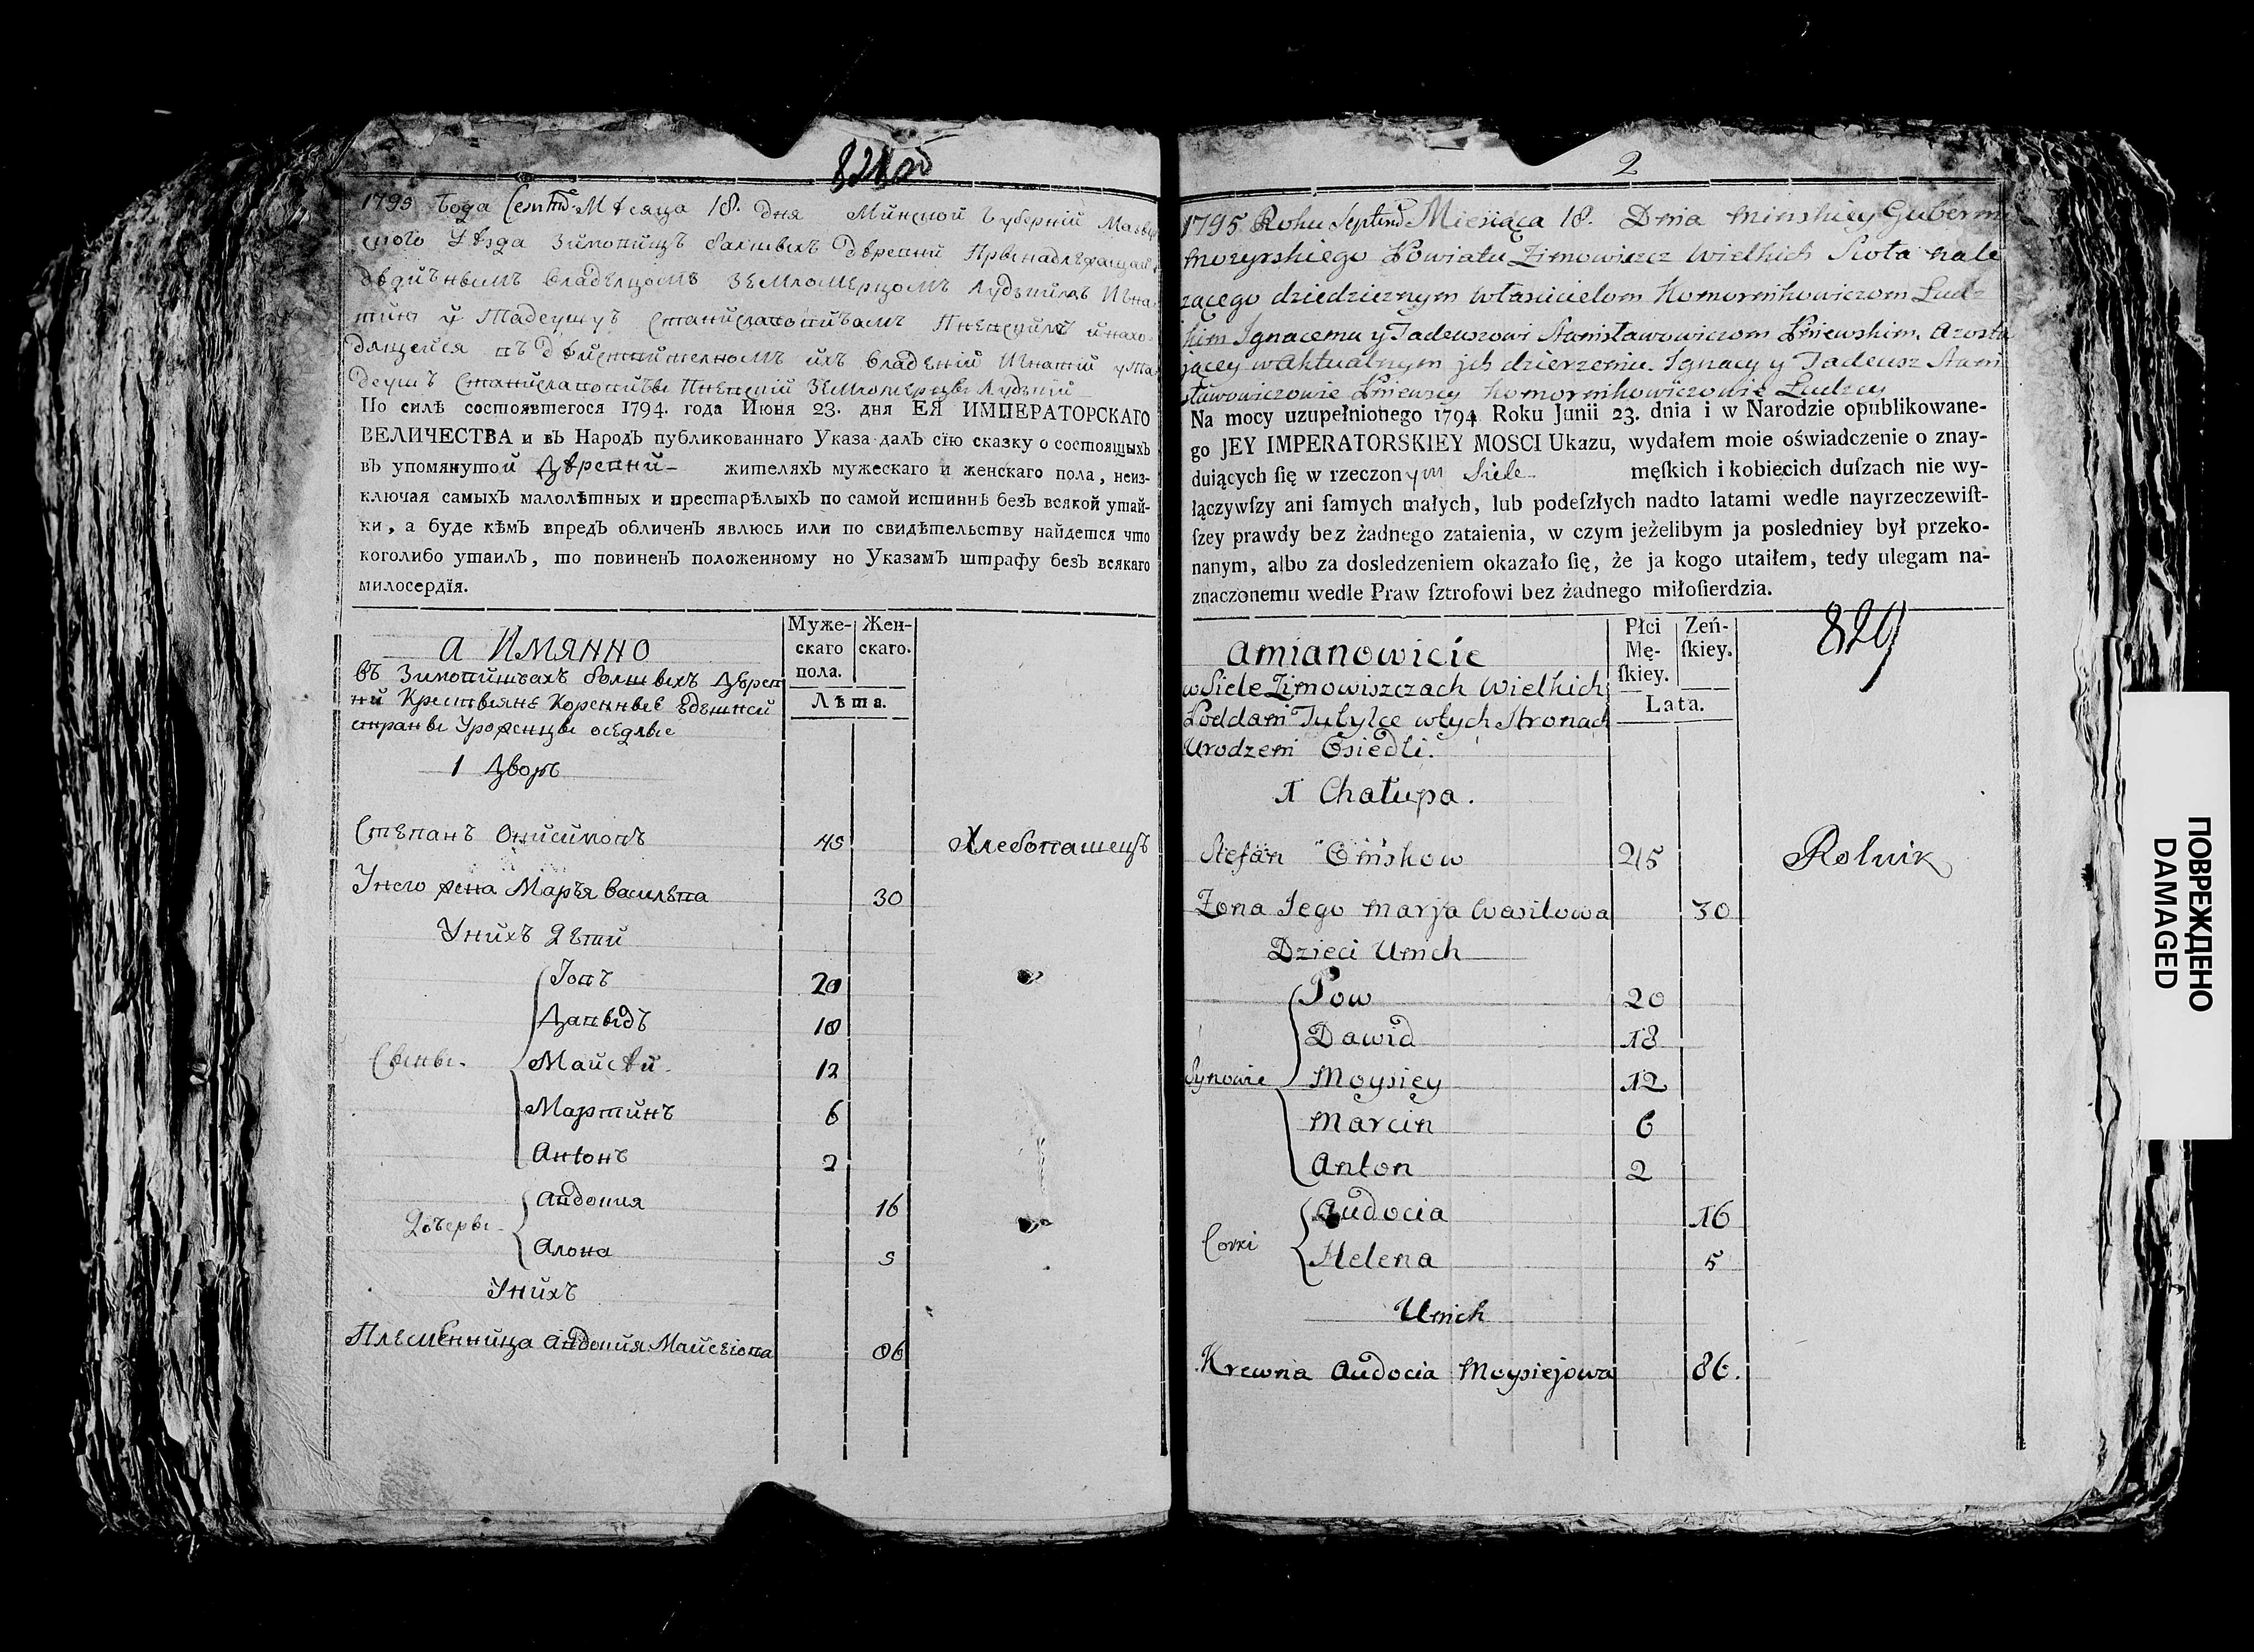 828
1795 года Септ. Мѣсяца 18. дня Минской Губерній
ского Уѣзда Зимовищъ болшвіхъ Дѣревни Прынадлежащай
владѣлцомъ Землом
и Тадеушу Станиславовичамъ
дящейся въ дѣйствителномъ ихъ владѣній Игнатій у Та
деушъ Станиславовичы
По силѣ состоявшегося 1794. года Июня 23. дня ЕЯ ИМПЕРАТОРСКАГО
ВЕЛИЧЕСТВА и въ Народъ публикованнаго Указа далъ сїю сказку о состоящыхъ
въ упомянутой Дѣревни жителяхъ мужескаго и женскаго пола, неиз-
ключая самыхъ малолѣтных и престарѣлыхъ по самой истиннѣ безъ всякой утай-
ки, а буде кѣмъ впредъ обличенъ явлюсь или по свидѣтельству найдется что
коголибо утаилъ, то повиненъ положенному но Указамъ штрафу безъ всякаго
милосердїя.
а Имянно
Муже-
скаго
пола.
Жен-
скаго.
Лѣта.
въ Зимовищахъ болшвіхъ Дѣрев
ни Крестьяне Коренные здешней
страны Уроженцы оседлые
1 Дворъ
Степанъ Онисимовъ 45 Хлебопашецъ
У него жена Марья Васильва 30
У нихъ дѣти
Іовъ 20
Давыдъ 18
Сыны Майсѣй 12
Мартинъ 6
Антонъ 2
Дочеры Авдоция 16
Алона 5
У нихъ
Племенница Авдоция Майсеіова 86
2
1795 Roku Septmb Miesiąca 18. Dnia Minskiey Guberni
Mozyrskiego Powiatu Zimowiszcz Wielkich Sioła nale
żącego dziedzicznym właścicielom Komornikowiczom Ludz
kim Ignacemu y Tadeuszowi Stanisławowiczom Pniewskim. A zosta
jącey w aktualnym jch dzierzeniu. Ignacy y Tadeusz Stani
sławowiczowie Pniewscy Komornikowiczowie Ludzcy
Na mocy uzupełnionego 1794 Roku Junii 23. dnia i w Narodzie opublikowane-
go JEY IMPERATORSKIEY MOSCI Ukazu, wydałem moie oświadczenie o znay-
duiących ſię w rzeczonym Siele męſkich i kobiecich duſzach nie wy-
łączywſzy ani ſamych małych, lub podeſzłych nadto latami wedle nayrzeczewiſt-
ſzey prawdy bez żadnego zataienia, w czym jeżelibym ja posledniey był przeko-
nanym, albo za dosledzeniem okazało ſię, że ja kogo utaiłem, tedy ulegam na-
znaczonemu wedle Praw ſztrofowi bez żadnego miłoſierdzia.
829
amianowicie
Płci
Mę-
ſkiey.
Zeń-
ſkiey.
Lata.
w Siele Zimowiszczach Wielkich
Poddani Tutylce w tych Stronach
Urodzeni Osiedli.
1 Chałupa.
Stefan Oniskow 45 Rolnik
Zona Jego Marja Wasilowa 30
Dzieci U nich
Jow 20
Dawid 18
Synowie Moysiey 12
Marcin 6
Anton 2
Corki Audocia 16
Helena 5
U nich
Krewna Audocia Moysiejowa 86.
ПОВРЕЖДЕНО
DAMAGED